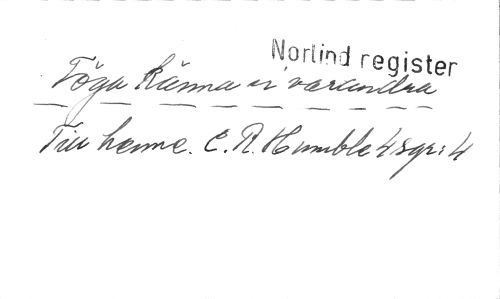 Norlind register
Föga känna vi varandra
Till henne. E. R. Humble 4 sgr: 4